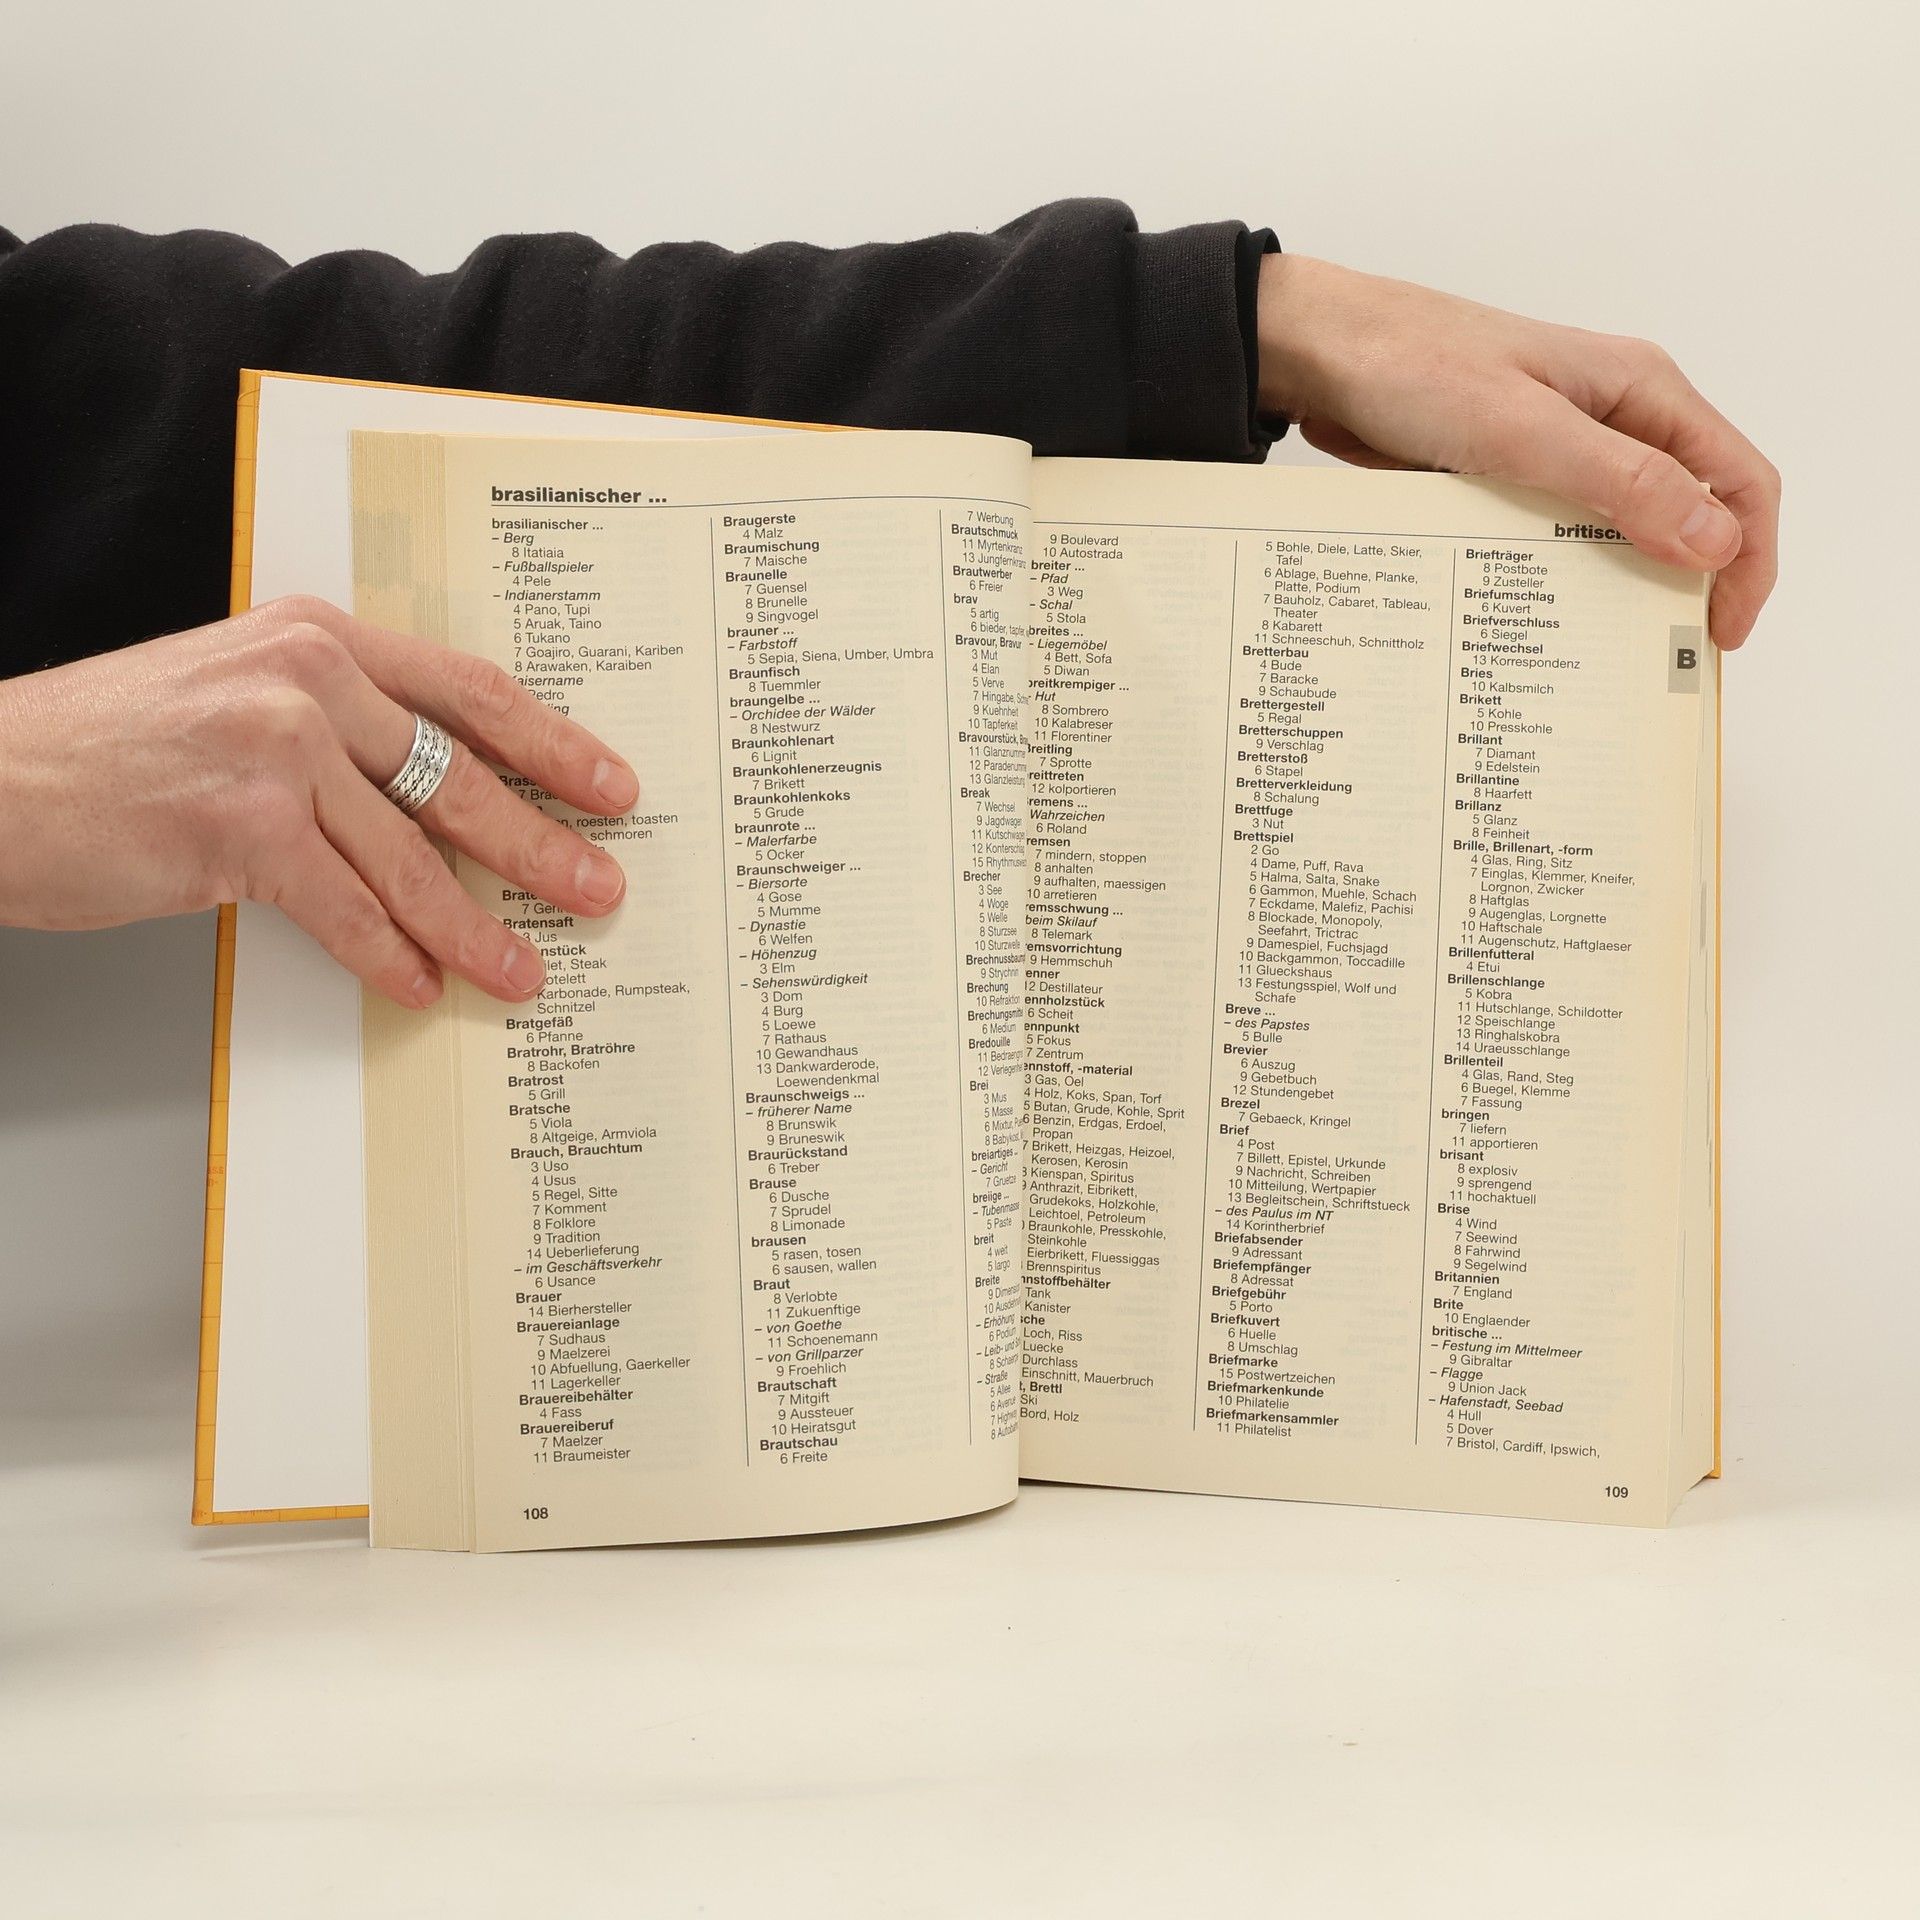 brasilianischer ...
brasilianischer ...
– Berg
8 Itatiaia
– Fußballspieler
4 Pele
– Indianerstamm
4 Pano, Tupi
5 Aruak, Taino
6 Tukano
7 Goajiro, Guarani, Kariben
8 Arawaken, Karaiben
Pedro
roesten, toasten
schmoren
Bratensaft
3 Jus
Steak
Karbonade, Rumpsteak,
Schnitzel
Bratgefäß
6 Pfanne
Bratrohr, Bratröhre
8 Backofen
Bratrost
5 Grill
Bratsche
5 Viola
8 Altgeige, Armviola
Brauch, Brauchtum
3 Uso
4 Usus
5 Regel, Sitte
7 Komment
8 Folklore
9 Tradition
14 Ueberlieferung
– im Geschäftsverkehr
6 Usance
Brauer
14 Bierhersteller
Brauereianlage
7 Sudhaus
9 Maelzerei
10 Abfuellung, Gaerkeller
11 Lagerkeller
Brauereibehälter
4 Fass
Brauereiberuf
7 Maelzer
11 Braumeister
Braugerste
4 Malz
Braumischung
7 Maische
Braunelle
7 Guensel
8 Brunelle
9 Singvogel
brauner ...
– Farbstoff
5 Sepia, Siena, Umber, Umbra
Braunfisch
8 Tuemmler
braungelbe ...
– Orchidee der Wälder
8 Nestwurz
Braunkohlenart
6 Lignit
Braunkohlenerzeugnis
7 Brikett
Braunkohlenkoks
5 Grude
braunrote ...
– Malerfarbe
5 Ocker
Braunschweiger ...
– Biersorte
4 Gose
5 Mumme
– Dynastie
6 Welfen
– Höhenzug
3 Elm
– Sehenswürdigkeit
3 Dom
4 Burg
5 Loewe
7 Rathaus
10 Gewandhaus
13 Dankwarderode,
Loewendenkmal
Braunschweigs ...
– früherer Name
8 Brunswik
9 Bruneswik
Braurückstand
6 Treber
Brause
6 Dusche
7 Sprudel
8 Limonade
brausen
5 rasen, tosen
6 sausen, wallen
Braut
8 Verlobte
11 Zukuenftige
– von Goethe
11 Schoenemann
– von Grillparzer
9 Froehlich
Brautschaft
7 Mitgift
9 Aussteuer
10 Heiratsgut
Brautschau
6 Freite
7 Werbung
Brautschmuck
11 Myrtenkranz
13 Jungfernkranz
Brautwerber
6 Freier
brav
5 artig
6 bieder,
Bravour, Bravur
3 Mut
4 Elan
5 Verve
7 Hingabe,
9 Kuehnheit
10 Tapferkeit
Bravourstück,
11 Glanznummer
12 Paradenummer
13 Glanzleistung
Break
7 Wechsel
9 Jagdwagen
11 Kutschwagen
12 Konterschlag
15
Brecher
3 See
4 Woge
5 Welle
8 Sturzsee
10 Sturzwelle
Brechnussbaum
9 Strychnin
Brechung
10 Refraktion
Brechungsmittel
6 Medium
Bredouille
11
12
Brei
3 Mus
5 Masse
6 Mixtur,
8 Babykost,
breiartiges ...
– Gericht
7 Gruetze
breiige ...
– Tubenmasse
5 Paste
breit
4 weit
5 largo
Breite
9 Dimension
10
– Erhöhung
6 Podium
– Leib- und
8
– Straße
5 Allee
6 Avenue
7 Highway
8 Autobahn
108
9 Boulevard
10 Autostrada
breiter ...
– Pfad
3 Weg
– Schal
5 Stola
breites ...
– Liegemöbel
4 Bett, Sofa
5 Diwan
breitkrempiger ...
– Hut
8 Sombrero
10 Kalabreser
11 Florentiner
Breitling
7 Sprotte
12 kolportieren
Wahrzeichen
6 Roland
7 mindern, stoppen
8 anhalten
9 aufhalten, maessigen
10 arretieren
beim Skilauf
8 Telemark
9 Hemmschuh
12 Destillateur
6 Scheit
5 Fokus
7 Zentrum
3 Gas, Oel
4 Holz, Koks, Span, Torf
5 Butan, Grude, Kohle, Sprit
6 Benzin, Erdgas, Erdoel,
Propan
7 Brikett, Heizgas, Heizoel,
Kerosen, Kerosin
Kienspan, Spiritus
Anthrazit, Eibrikett,
Grudekoks, Holzkohle,
Leichtoel, Petroleum
Braunkohle, Presskohle,
Steinkohle
Eierbrikett, Fluessiggas
Brennspiritus
Tank
Kanister
Loch, Riss
Luecke
Durchlass
Einschnitt, Mauerbruch
Brettl
Ski
Bord, Holz
5 Bohle, Diele, Latte, Skier,
Tafel
6 Ablage, Buehne, Planke,
Platte, Podium
7 Bauholz, Cabaret, Tableau,
Theater
8 Kabarett
11 Schneeschuh, Schnittholz
Bretterbau
4 Bude
7 Baracke
9 Schaubude
Brettergestell
5 Regal
Bretterschuppen
9 Verschlag
Bretterstoß
6 Stapel
Bretterverkleidung
8 Schalung
Brettfuge
3 Nut
Brettspiel
2 Go
4 Dame, Puff, Rava
5 Halma, Salta, Snake
6 Gammon, Muehle, Schach
7 Eckdame, Malefiz, Pachisi
8 Blockade, Monopoly,
Seefahrt, Trictrac
9 Damespiel, Fuchsjagd
10 Backgammon, Toccadille
11 Glueckshaus
13 Festungsspiel, Wolf und
Schafe
Breve ...
– des Papstes
5 Bulle
Brevier
6 Auszug
9 Gebetbuch
12 Stundengebet
Brezel
7 Gebaeck, Kringel
Brief
4 Post
7 Billett, Epistel, Urkunde
9 Nachricht, Schreiben
10 Mitteilung, Wertpapier
13 Begleitschein, Schriftstueck
– des Paulus im NT
14 Korintherbrief
Briefabsender
9 Adressant
Briefempfänger
8 Adressat
Briefgebühr
5 Porto
Briefkuvert
6 Huelle
8 Umschlag
Briefmarke
15 Postwertzeichen
Briefmarkenkunde
10 Philatelie
Briefmarkensammler
11 Philatelist
Briefträger
8 Postbote
9 Zusteller
Briefumschlag
6 Kuvert
Briefverschluss
6 Siegel
Briefwechsel
13 Korrespondenz
Bries
10 Kalbsmilch
Brikett
5 Kohle
10 Presskohle
Brillant
7 Diamant
9 Edelstein
Brillantine
8 Haarfett
Brillanz
5 Glanz
8 Feinheit
Brille, Brillenart, -form
4 Glas, Ring, Sitz
7 Einglas, Klemmer, Kneifer,
Lorgnon, Zwicker
8 Haftglas
9 Augenglas, Lorgnette
10 Haftschale
11 Augenschutz, Haftglaeser
Brillenfutteral
4 Etui
Brillenschlange
5 Kobra
11 Hutschlange, Schildotter
12 Speischlange
13 Ringhalskobra
14 Uraeusschlange
Brillenteil
4 Glas, Rand, Steg
6 Buegel, Klemme
7 Fassung
bringen
7 liefern
11 apportieren
brisant
8 explosiv
9 sprengend
11 hochaktuell
Brise
4 Wind
7 Seewind
8 Fahrwind
9 Segelwind
Britannien
7 England
Brite
10 Englaender
britische ...
– Festung im Mittelmeer
9 Gibraltar
– Flagge
9 Union Jack
– Hafenstadt, Seebad
4 Hull
5 Dover
7 Bristol, Cardiff, Ipswich,
B
109